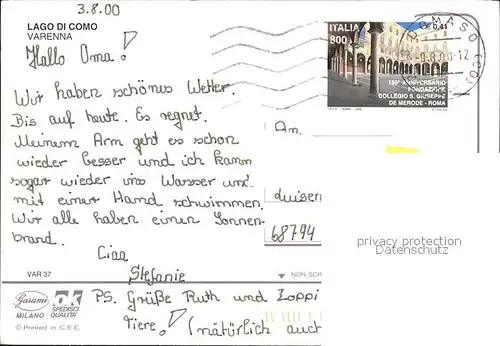 3.8.00
LAGO DI COMO
VARENNA
Hallo Oma!
Wir haben schönes Wetter.
Bis auf heute. Es regnet.
Meinem Arm geht es schon
wieder besser und ich kann
sogar wieder ins Wasser und
mit einer Hand schwimmen.
Wir alle haben einen Sonnen-
brand.
Ciao
Stefanie
PS. Grüße Ruth und Zoppi
Tiere! (natürlich auch
ITALIA
800
€ 0,41
150° ANNIVERSARIO
FONDAZIONE
COLLEGIO S. GIUSEPPE
DE MERODE - ROMA
MASO (CO)
An
Luisen
68794
privacy protection
Datenschutz
VAR 37
NON SCR
Garami
MILANO
OK
SPEDISCI
QUALITA'
© Printed in C.E.E.